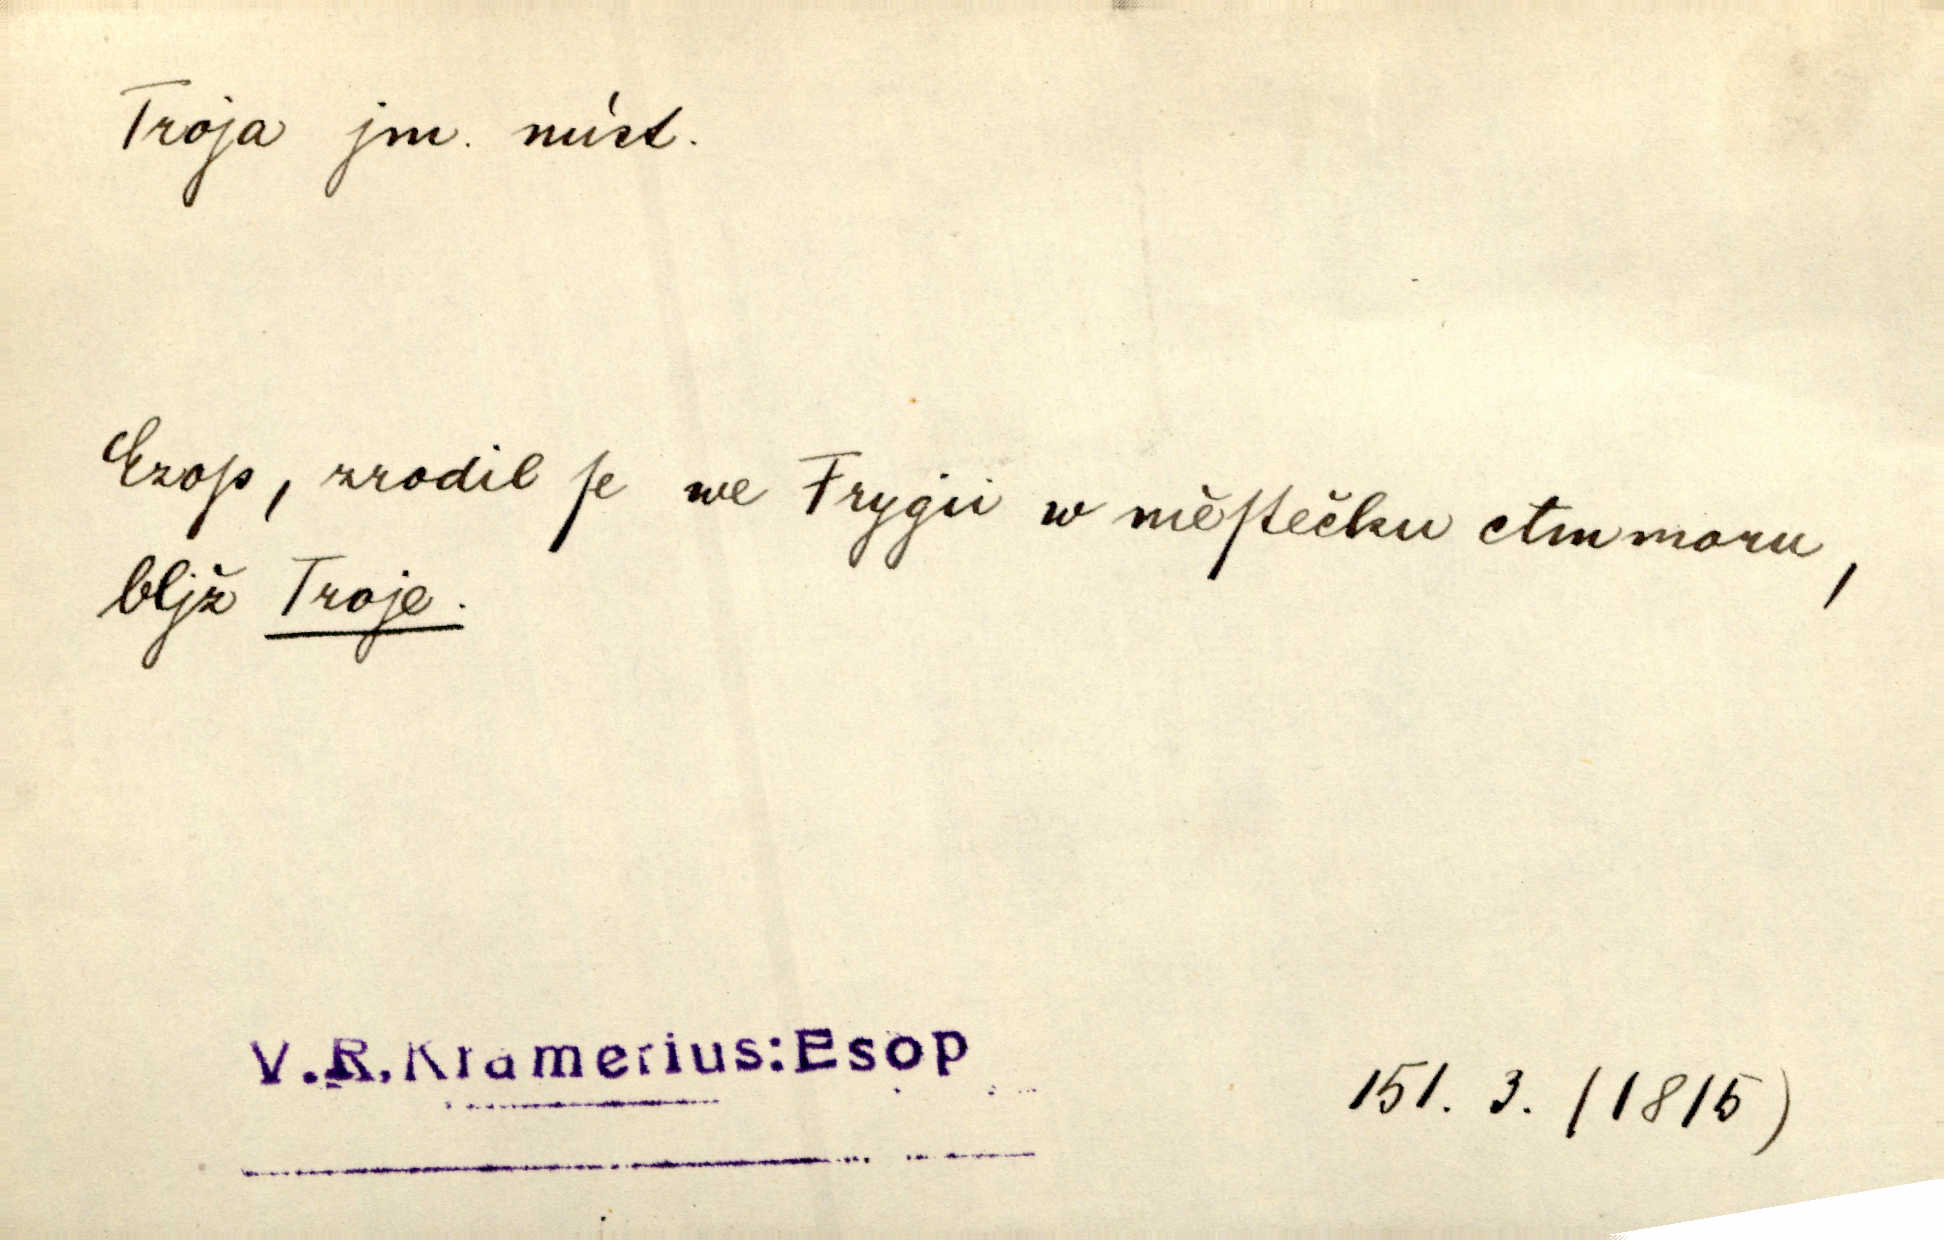 Troja jm. míst.
Ezop, zrodil ſe we Frygii w měſtečku Ammoru,
bljž Troje.
V.R.Kramerius:Esop
151. 3. (1815)